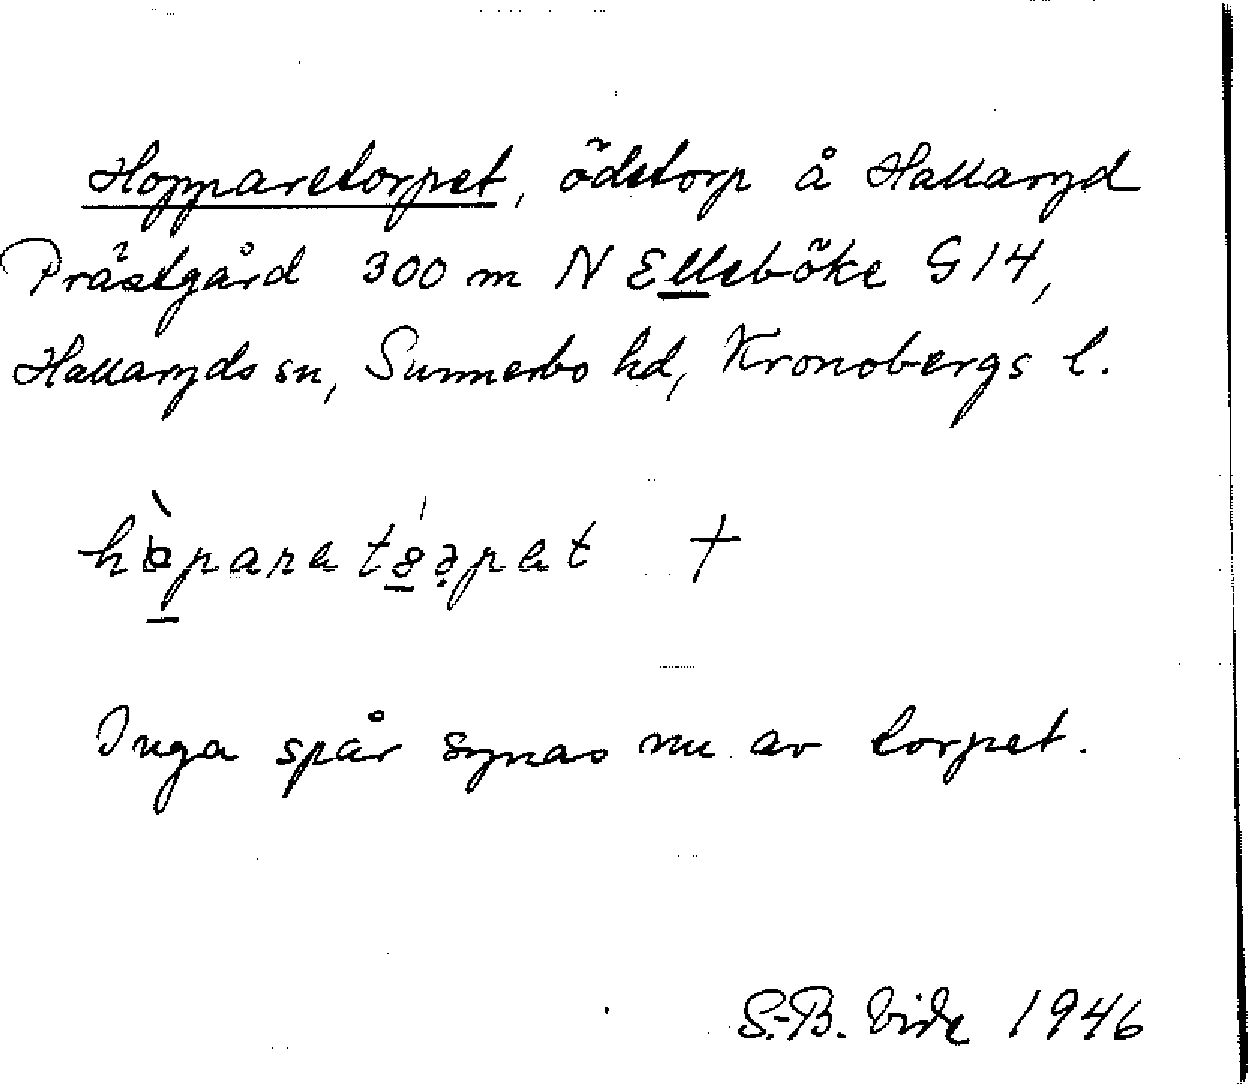 Hopparetorpet, ödetorp å Hallaryd
Prästgård 300 m N Elleböke G14,
Hallaryds sn, Sunnerbo hd, Kronobergs l.
Inga spår synas nu av torpet.
S.-B. Vide 1946